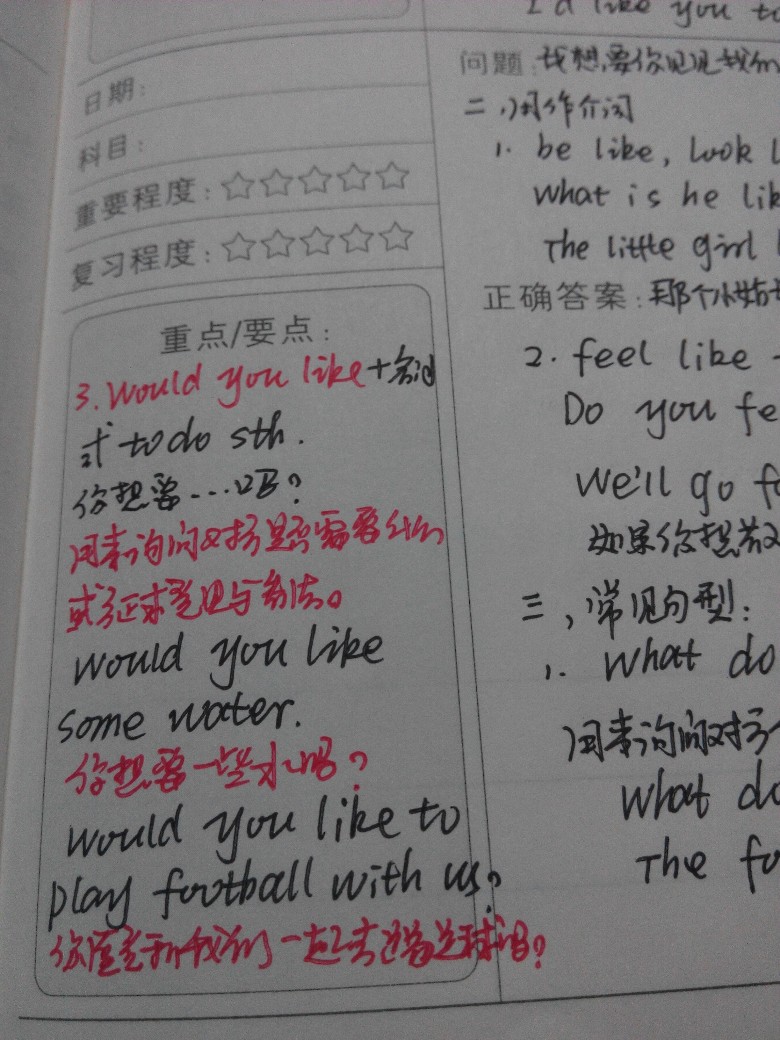 日期:
科目:
重要程度:
复习程度:
重点/要点:
3. Would you like + 名词
或 to do sth.
你想要...吗?
用来询问对方是否需要什么
或征求意见与看法。
would you like
some water.
你想要一些水吗?
would you like to
play football with us?
你愿意和我们一起去踢足球吗?
I'd like you to
问题: 我想要你见见我的
二,用作介词
1. be like, look l
What is he lik
The little girl
正确答案: 那个小姑
2. feel like
Do you fe
We'll go fo
如果你想散
三,常见句型:
1. what do
用来询问对方
what do
The fo